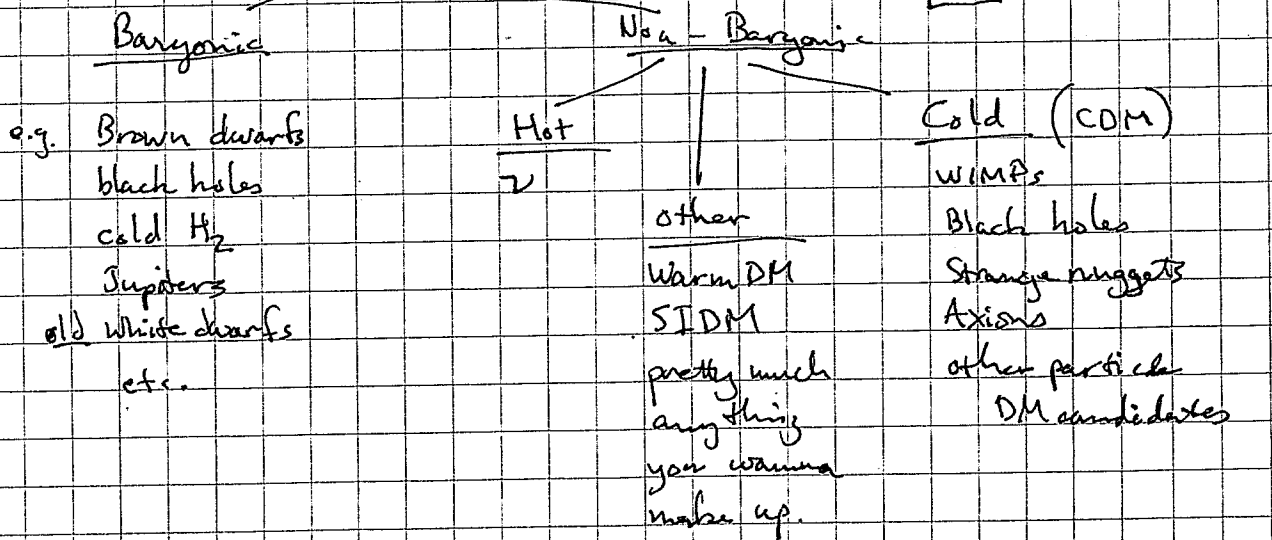 Baryonic
Non - Baryonic
e.g. Brown dwarfs
black holes
cold H₂
Jupiters
old white dwarfs
etc.
Hot
ν
other
Warm DM
SIDM
pretty much
anything
you wanna
make up.
Cold (CDM)
WIMPs
Black holes
Strange nuggets
Axions
other particle
DM candidates